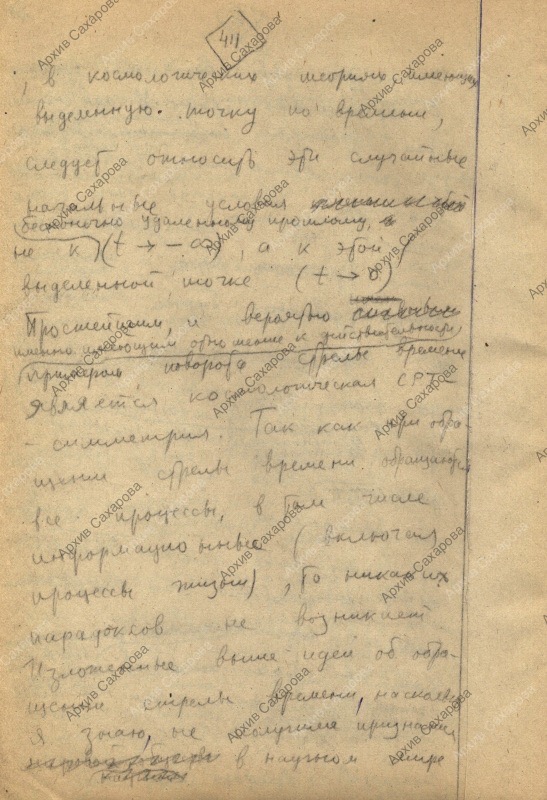 411
, в космологических теориях, имеющих
выделенную точку по времени,
следует относить эти случайные
начальные условия
бесконечно удаленному прошлому, в
не к (t → −∞), а к этой
выделенной точке (t → 0)
Простейшим, и вероятно
именно имеющим отношение к действительности,
примером поворота стрелы времени
является космологическая CPT-
-симметрия. Так как при обра-
щении стрелы времени обращаются
все процессы, в том числе
информационные (включая
процессы жизни), то никаких
парадоксов не возникает
Изложенные выше идеи об обра-
щении стрелы времени, насколько
я знаю, не получили признания
в научном мире